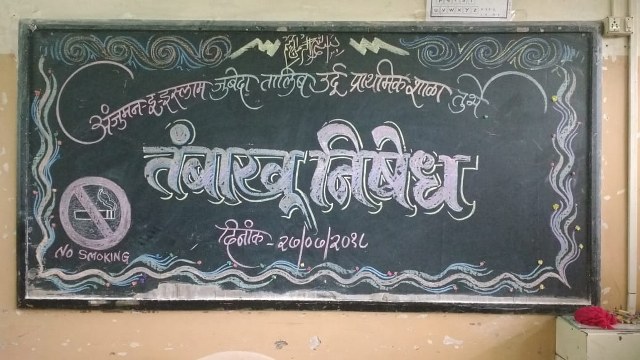 अंजुमन-इ-इस्लाम जुबेदा तालिब उर्दू प्राथमिक शाळा
तंबाखू निषेध
दिनांक - २७/०७/२०१८
NO SMOKING